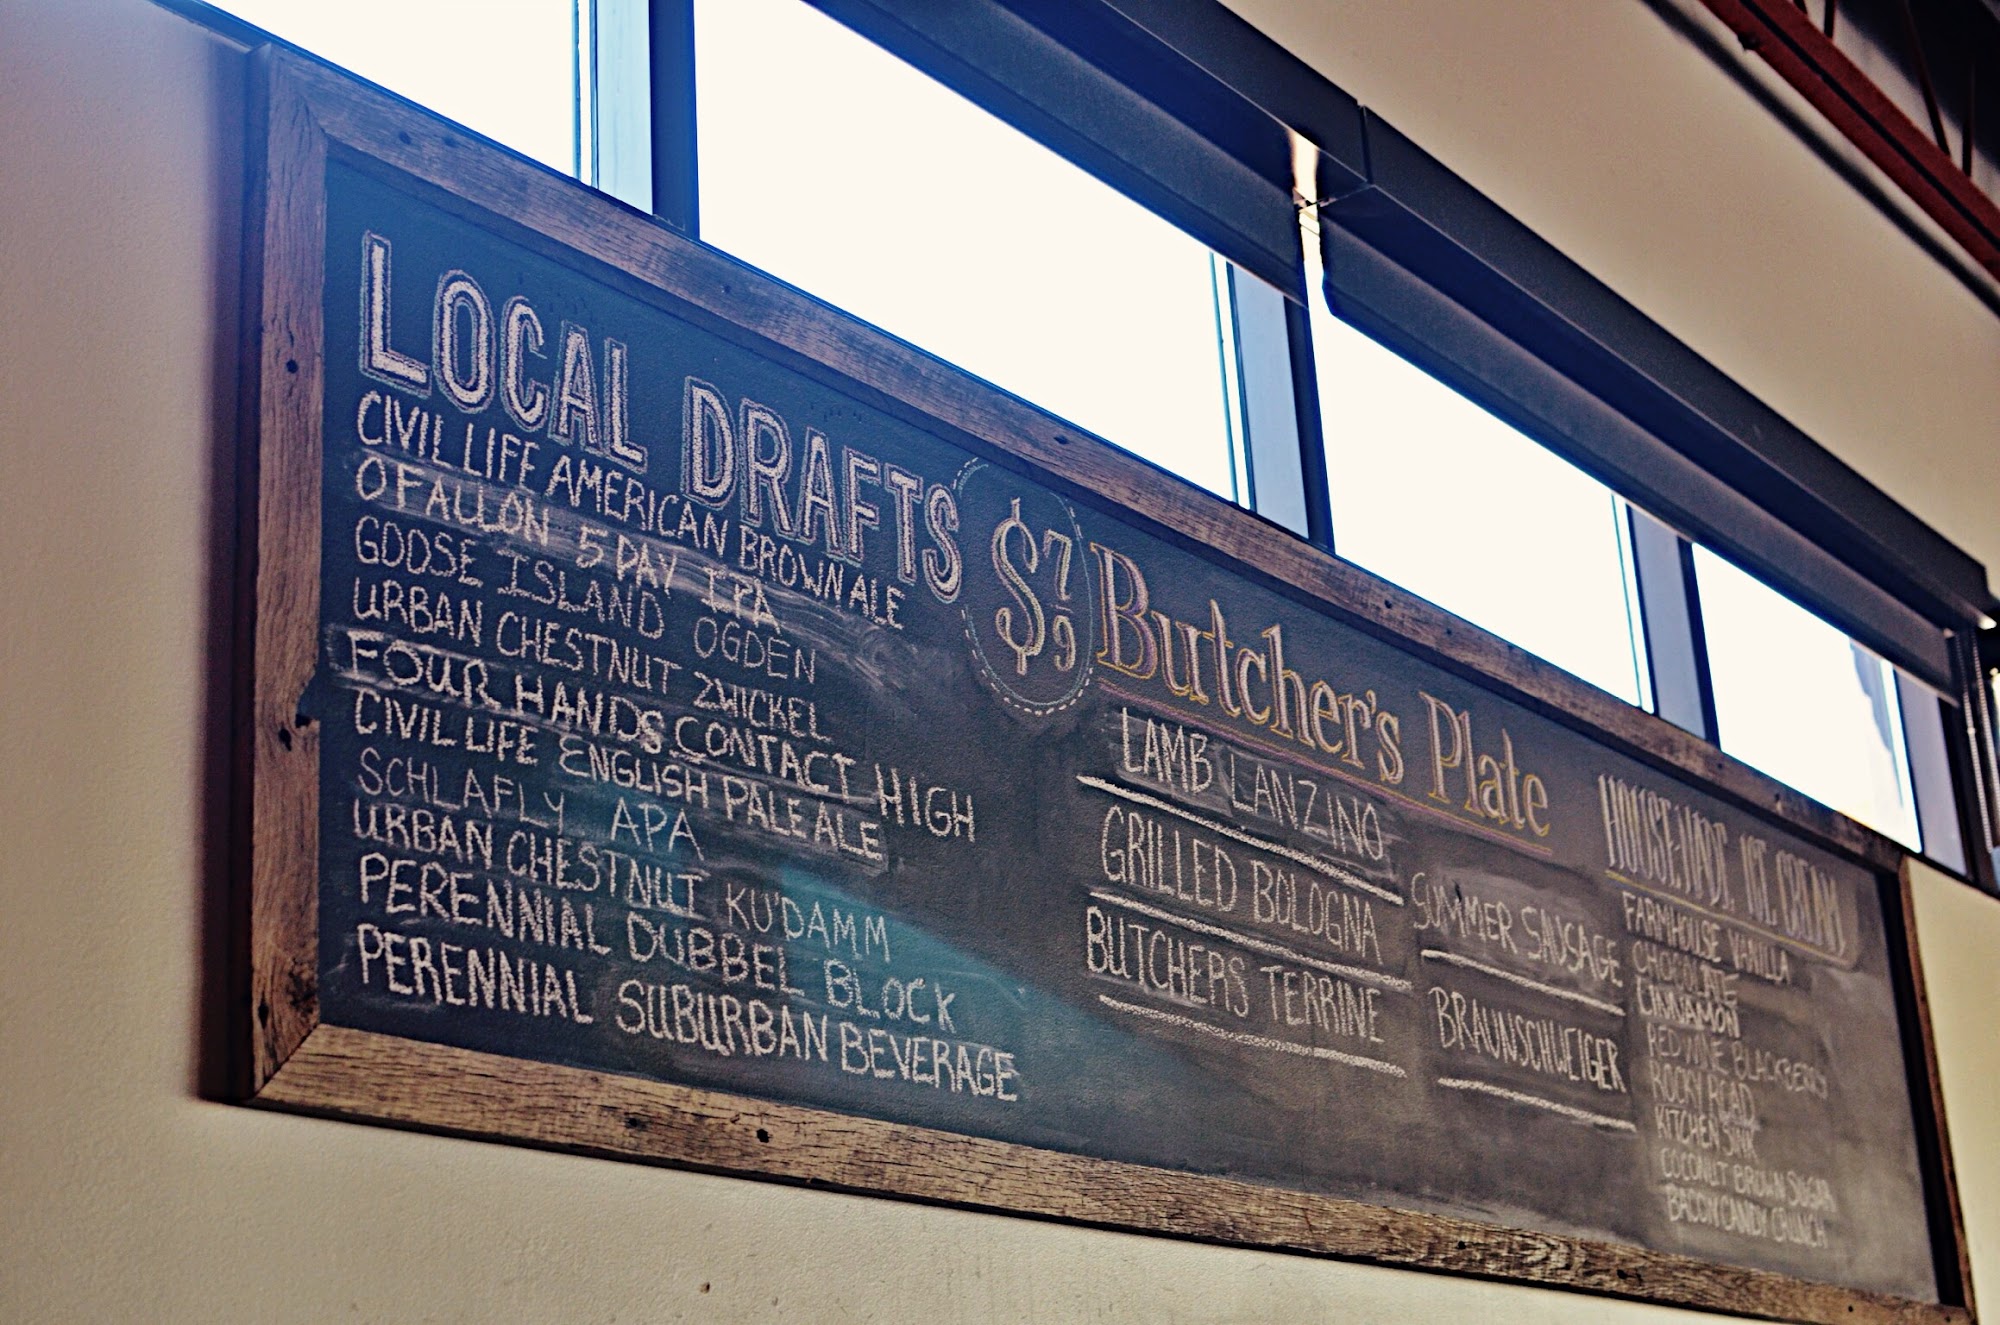 LOCAL DRAFTS
CIVIL LIFE AMERICAN BROWN ALE
O'FALLON 5 DAY IPA
GOOSE ISLAND OGDEN
URBAN CHESTNUT ZWICKEL
FOUR HANDS CONTACT HIGH
CIVIL LIFE ENGLISH PALE ALE
SCHLAFLY APA
URBAN CHESTNUT KU'DAMM
PERENNIAL DUBBEL BLOCK
PERENNIAL SUBURBAN BEVERAGE
$7/9
Butcher's Plate
LAMB LANZINO
GRILLED BOLOGNA
BUTCHERS TERRINE
SUMMER SAUSAGE
BRAUNSCHWEIGER
HOUSE-MADE ICE CREAM
FARMHOUSE VANILLA
CHOCOLATE
CINNAMON
RED WINE BLACKBERRY
ROCKY ROAD
KITCHEN SINK
COCONUT BROWN SUGAR
BACON CANDY CRUNCH